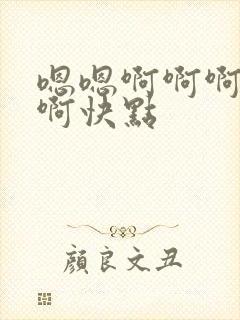 嗯嗯啊啊啊
啊快點
顏良文丑